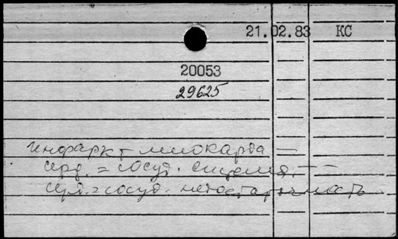 21.02.83 КС
20053
29625
инфаркт миокарда —
серд. = сосуд. система. —
серд. = сосуд. недостаточность